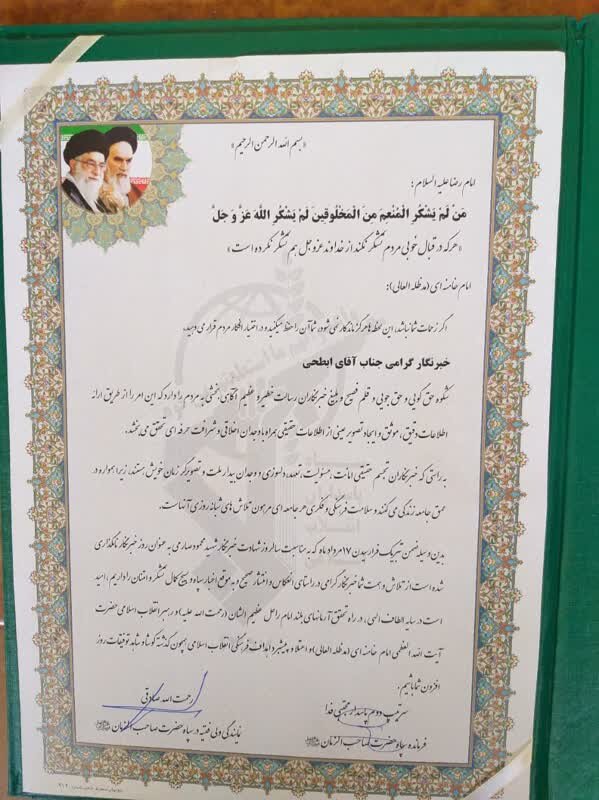 «بسم الله الرحمن الرحیم»
امام رضا علیه السلام :
مَنْ لَمْ یَشْکُرِ الْمُنْعِمَ مِنَ الْمَخْلُوقِینَ لَمْ یَشْکُرِ اللهَ عَزَّ وَ جَلَّ
« هرکه در قبال خوبی مردم تشکر نکند از خداوند عزوجل هم تشکر نکرده است »
امام خامنه ای (مدظله العالی):
اگر زحمات شما نباشد، این لحظه ها هرگز ماندگار نمی شود، شما آن را حفظ میکنید و در اختیار افکار مردم قرار می دهید.
خبرنگار گرامی جناب آقای ابطحی
شکوه حق گویی و حق جویی و قلم فصیح و بلیغ خبرنگاران رسالت خطیر و عظیم آگاهی بخشی به مردم را دارد که این امر را از طریق ارائه
اطلاعات دقیق، موثق و ایجاد تصویر عینی از اطلاعات حقیقی همراه با وجدان اخلاقی و شرافت حرفه ای تحقق می بخشد.
به راستی که خبرنگاران تجسم حقیقی امانت، مسئولیت، تعهد، دلسوزی و وجدان بیدار ملت و تصویرگر زمان خویش هستند، زیرا همواره در
عمق جامعه زندگی می کنند و سلامت فرهنگی و فکری هر جامعه ای مرهون تلاش های شبانه روزی آنهاست.
بدین وسیله ضمن تبریک فرارسیدن ۱۷ مرداد ماه که به مناسبت سالروز شهادت خبرنگار شهید محمود صارمی به عنوان روز خبرنگار نامگذاری
شده است از تلاش و همت شما خبرنگار گرامی در راستای انعکاس و انتشار صحیح و به موقع اخبار سپاه و بسیج کمال تشکر و امتنان را داریم، امید
است در سایه الطاف الهی، در راه تحقق آرمانهای بلند امام راحل عظیم الشان (رحمت الله علیه) و رهبر انقلاب اسلامی حضرت
آیت الله العظمی امام خامنه ای (مدظله العالی) و اعتلا و پیشبرد اهداف فرهنگی انقلاب اسلامی همچون گذشته کوشا و شاهد توفیقات روز
افزون شما باشیم.
سرتیپ دوم پاسدار مجتبی فدا
فرمانده سپاه حضرت صاحب الزمان
رحمت الله صادقی
نمایندگی ولی فقیه در سپاه حضرت صاحب الزمان